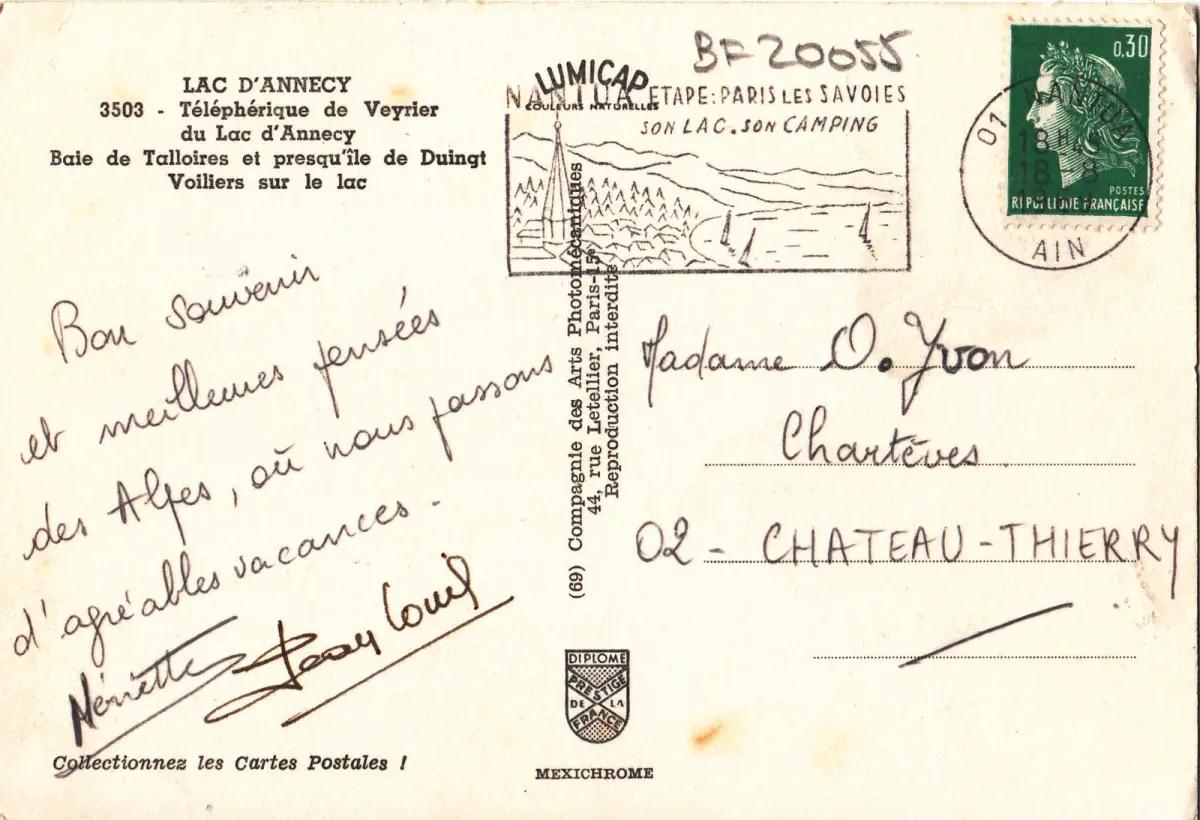 LAC D'ANNECY
3503 - Téléphérique de Veyrier
du Lac d'Annecy
Baie de Talloires et presqu'île de Duingt
Voiliers sur le lac
Bon souvenir
et meilleures pensées
des Alpes, où nous passons
d'agréables vacances.
Jean Louis
Collectionnez les Cartes Postales !
LUMICAP
COULEURS NATURELLES
BF 20055
NANTUA ETAPE: PARIS LES SAVOIES
SON LAC. SON CAMPING
(69) Compagnie des Arts Photomécaniques
44, rue Letellier, Paris-15e
Reproduction interdite
DIPLOME
PRESTIGE
DE LA
FRANCE
MEXICHROME
0,30
POSTES
REPUBLIQUE FRANÇAISE
01 NANTUA
18H45
18 8
AIN
Madame O. Yvon
Chartèves
02 - CHATEAU-THIERRY